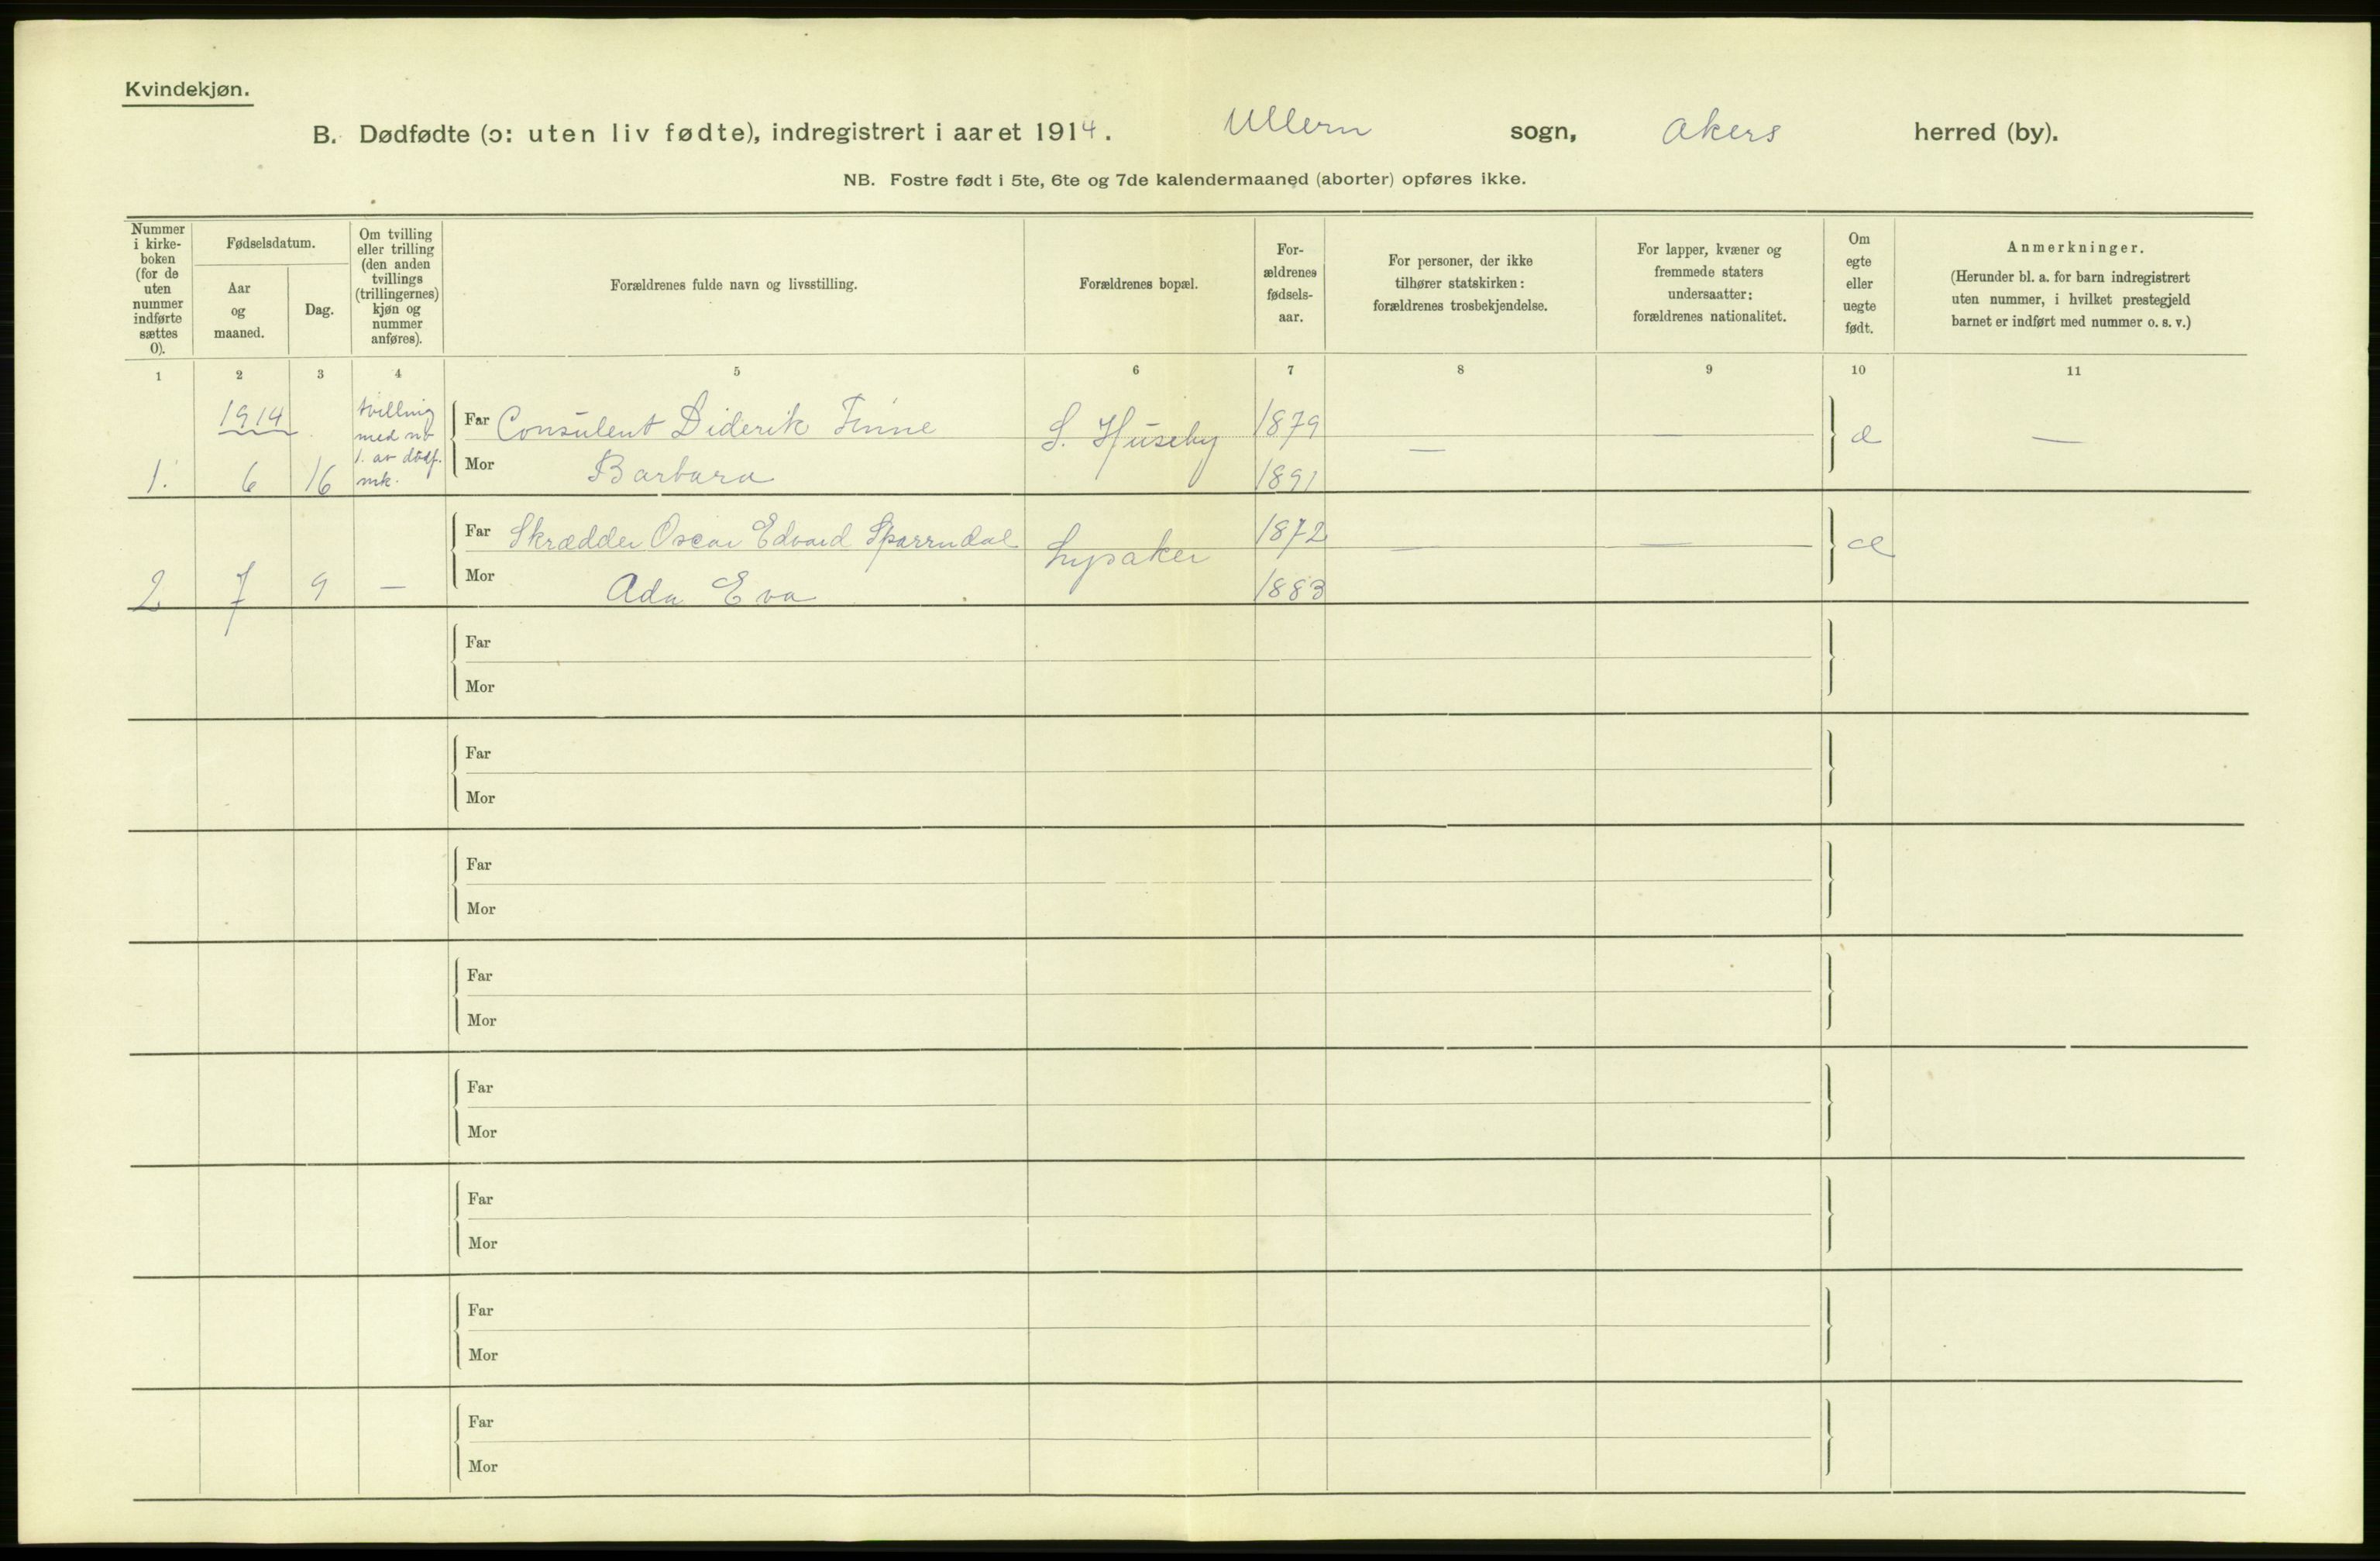 Kvindekjøn.
B. Dødfødte (ɔ: uten liv fødte), indregistrert i aaret 1914. Ullern sogn, Akers herred (by).
NB. Fostre født i 5te, 6te og 7de kalendermaaned (aborter) opføres ikke.
Nummer
i kirke-
boken
(for de
uten
nummer
indførte
sættes
0).
Fødselsdatum.
Aar
og
maaned.
Dag.
Om tvilling
eller trilling
(den anden
tvillings
(trillingernes)
kjøn og
nummer
anføres).
Forældrenes fulde navn og livsstilling.
Forældrenes bopæl.
For-
ældrenes
fødsels-
aar.
For personer, der ikke
tilhører statskirken:
forældrenes trosbekjendelse.
For lapper, kvæner og
fremmede staters
undersaatter:
forældrenes nationalitet.
Om
egte
eller
uegte
født.
Anmerkninger.
(Herunder bl. a. for barn indregistrert
uten nummer, i hvilket prestegjeld
barnet er indført med nummer o. s. v.)
1 2 3 4 5 6 7 8 9 10 11
1914
tvilling
med nr
1. av dødf.
mk.
Far Consulent Diderik Finne S. Huseby 1879 — — æ —
1. 6 16 Mor Barbara 1891
Far Skrædder Oscar Edvard Sparrudal Lysaker 1872 — — æ
2 7 9 — Mor Ada Eva 1883
Far
Mor
Far
Mor
Far
Mor
Far
Mor
Far
Mor
Far
Mor
Far
Mor
Far
Mor